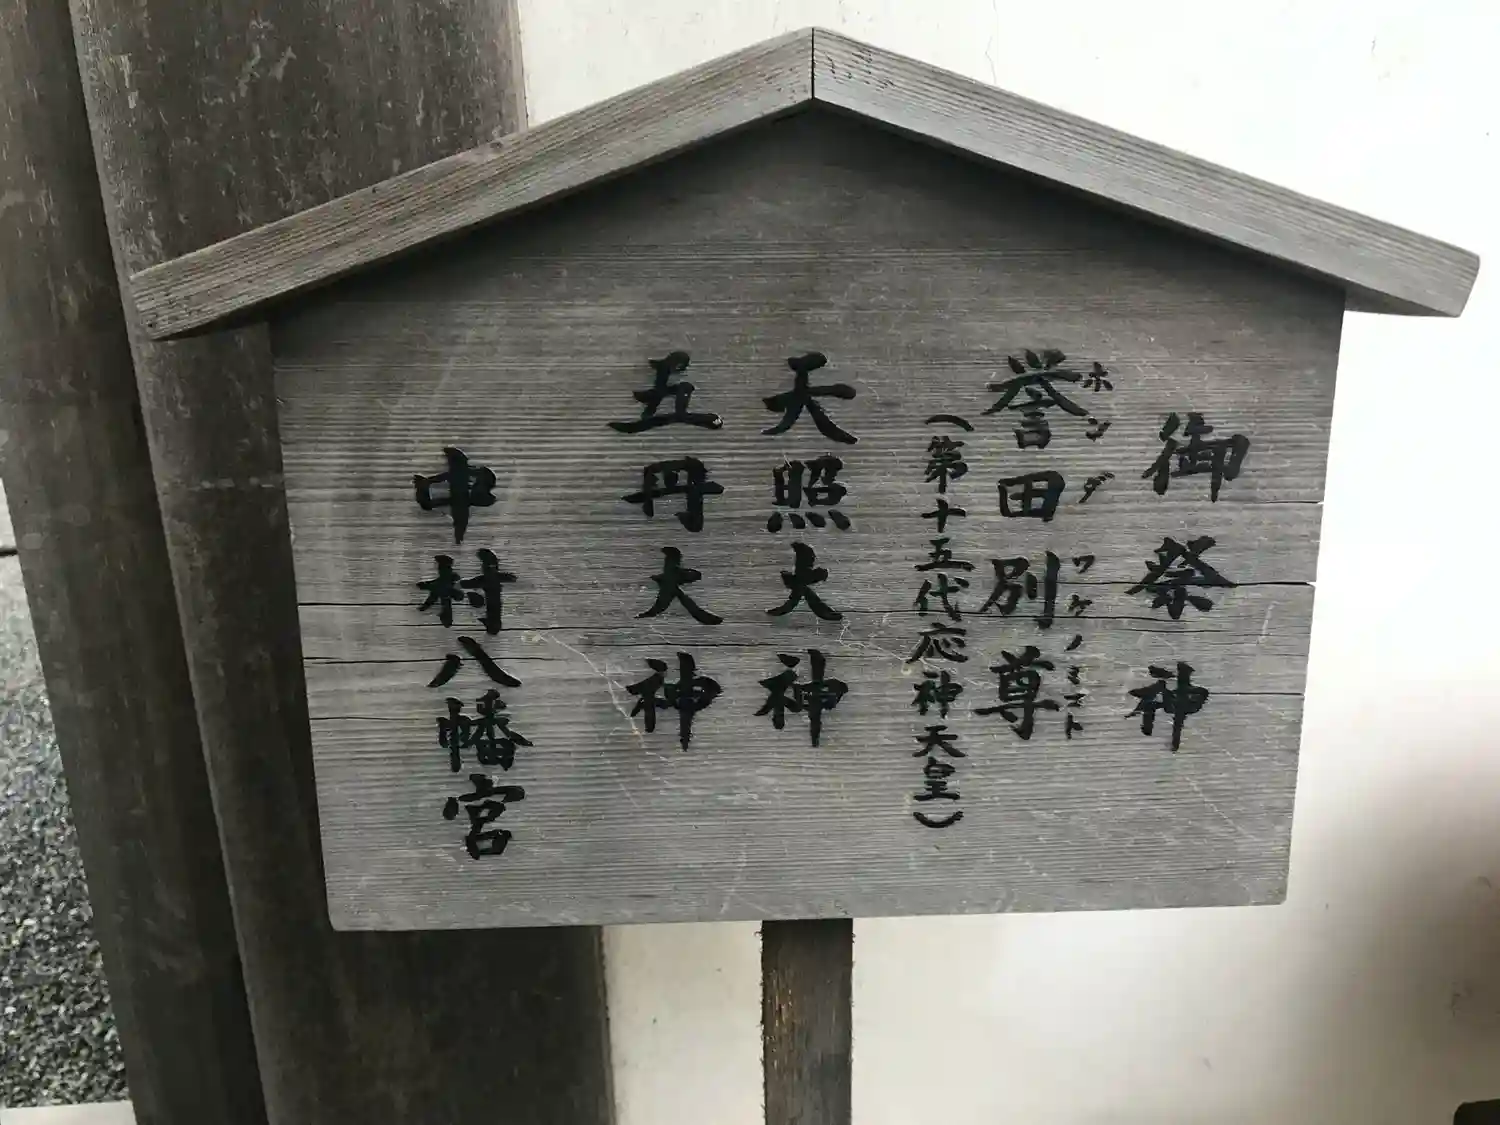 御祭神
誉田別尊
ホンダワケノミコト
（第十五代応神天皇）
天照大神
五丹大神
中村八幡宮